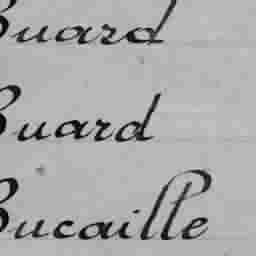 Buard
Buard
Bucaille